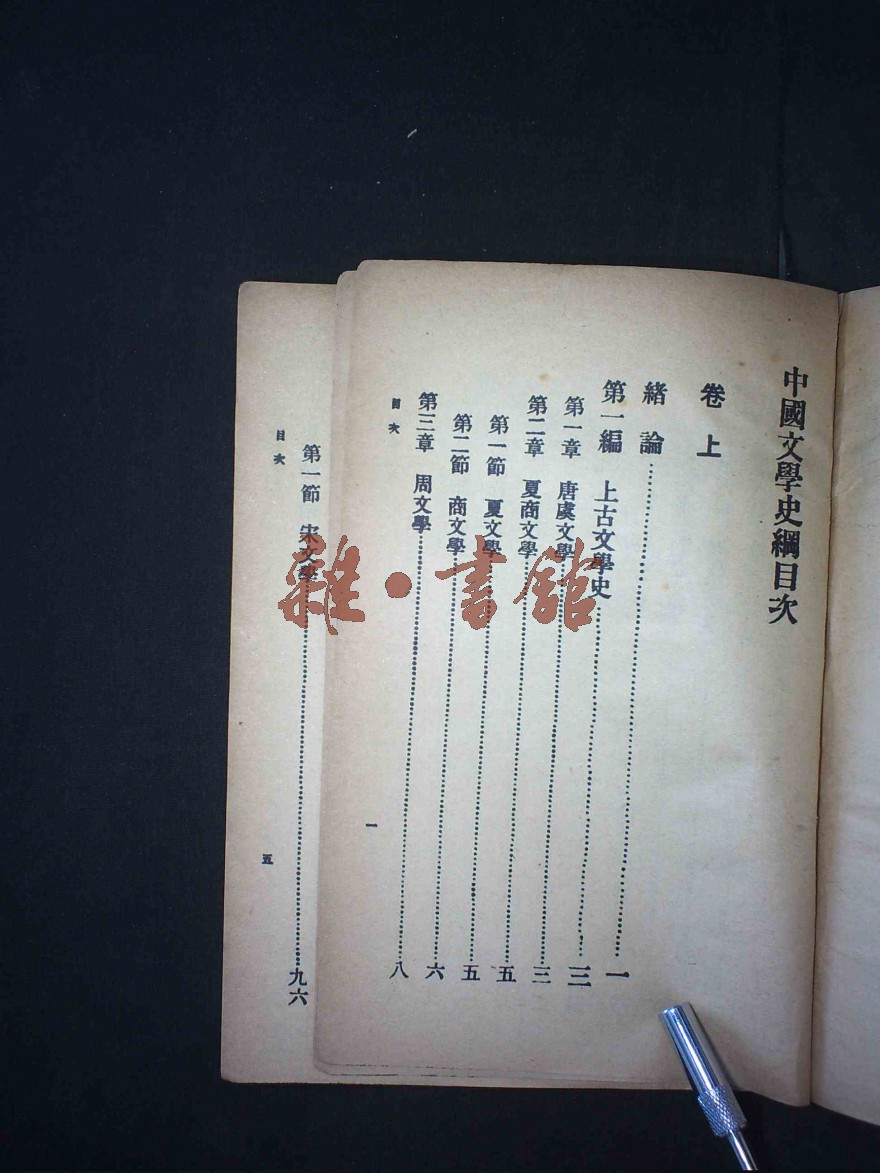 中國文學史綱目次
卷上
緒論……一
第一編 上古文學史……三
第一章 唐虞文學……三
第二章 夏商文學……五
第一節 夏文學……五
第二節 商文學……六
第三章 周文學……八
目次
一
第一節 宋文學……九六
目次
五
雜·書館